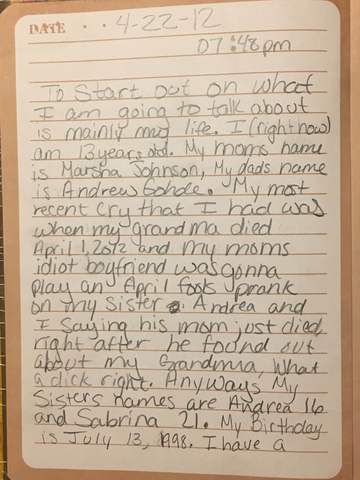 DATE · · 4-22-12
07:48pm
To Start out on what
I am going to talk about
is mainly my life. I (right now)
am 13 years old. My moms name
is Marsha Johnson, My dads name
is Andrew Gohde. My most
recent cry that I had was
when my grandma died
April 1, 2012 and my moms
idiot boyfriend was gonna
play an April fools prank
on my sister Andrea and
I Saying his mom just died
right after he found out
about my Grandma, What
a dick right. Anyways My
Sisters names are Andrea 16
and Sabrina 21. My Birthday
is July 13, 1998. I have a